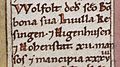 Wolfolt ded sco Bo
bona sua In uilla Re
singen· et Nigenhusen
et Hohenstatt XII man
sos et mancipia XXXV